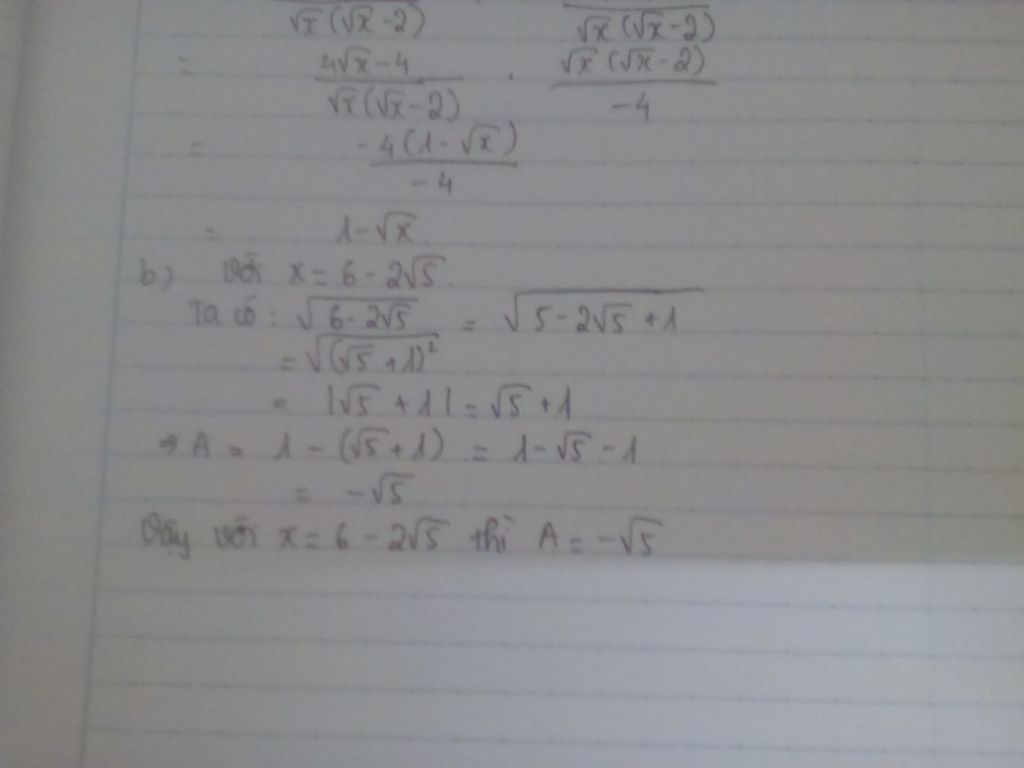 √x(√x-2) √x(√x-2)
= (4√x-4)/(√x(√x-2)) . (√x(√x-2))/(-4)
= (-4(1-√x))/(-4)
= 1-√x.
b) với x = 6 - 2√5.
Ta có: √(6-2√5) = √(5-2√5+1)
= √((√5+1)²)
= |√5+1| = √5+1
⇒ A = 1 - (√5+1) = 1-√5-1
= -√5
Vậy với x = 6 - 2√5 thì A = -√5